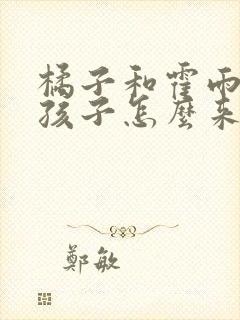 橘子和霍雨
孩子怎麼來
鄭敏